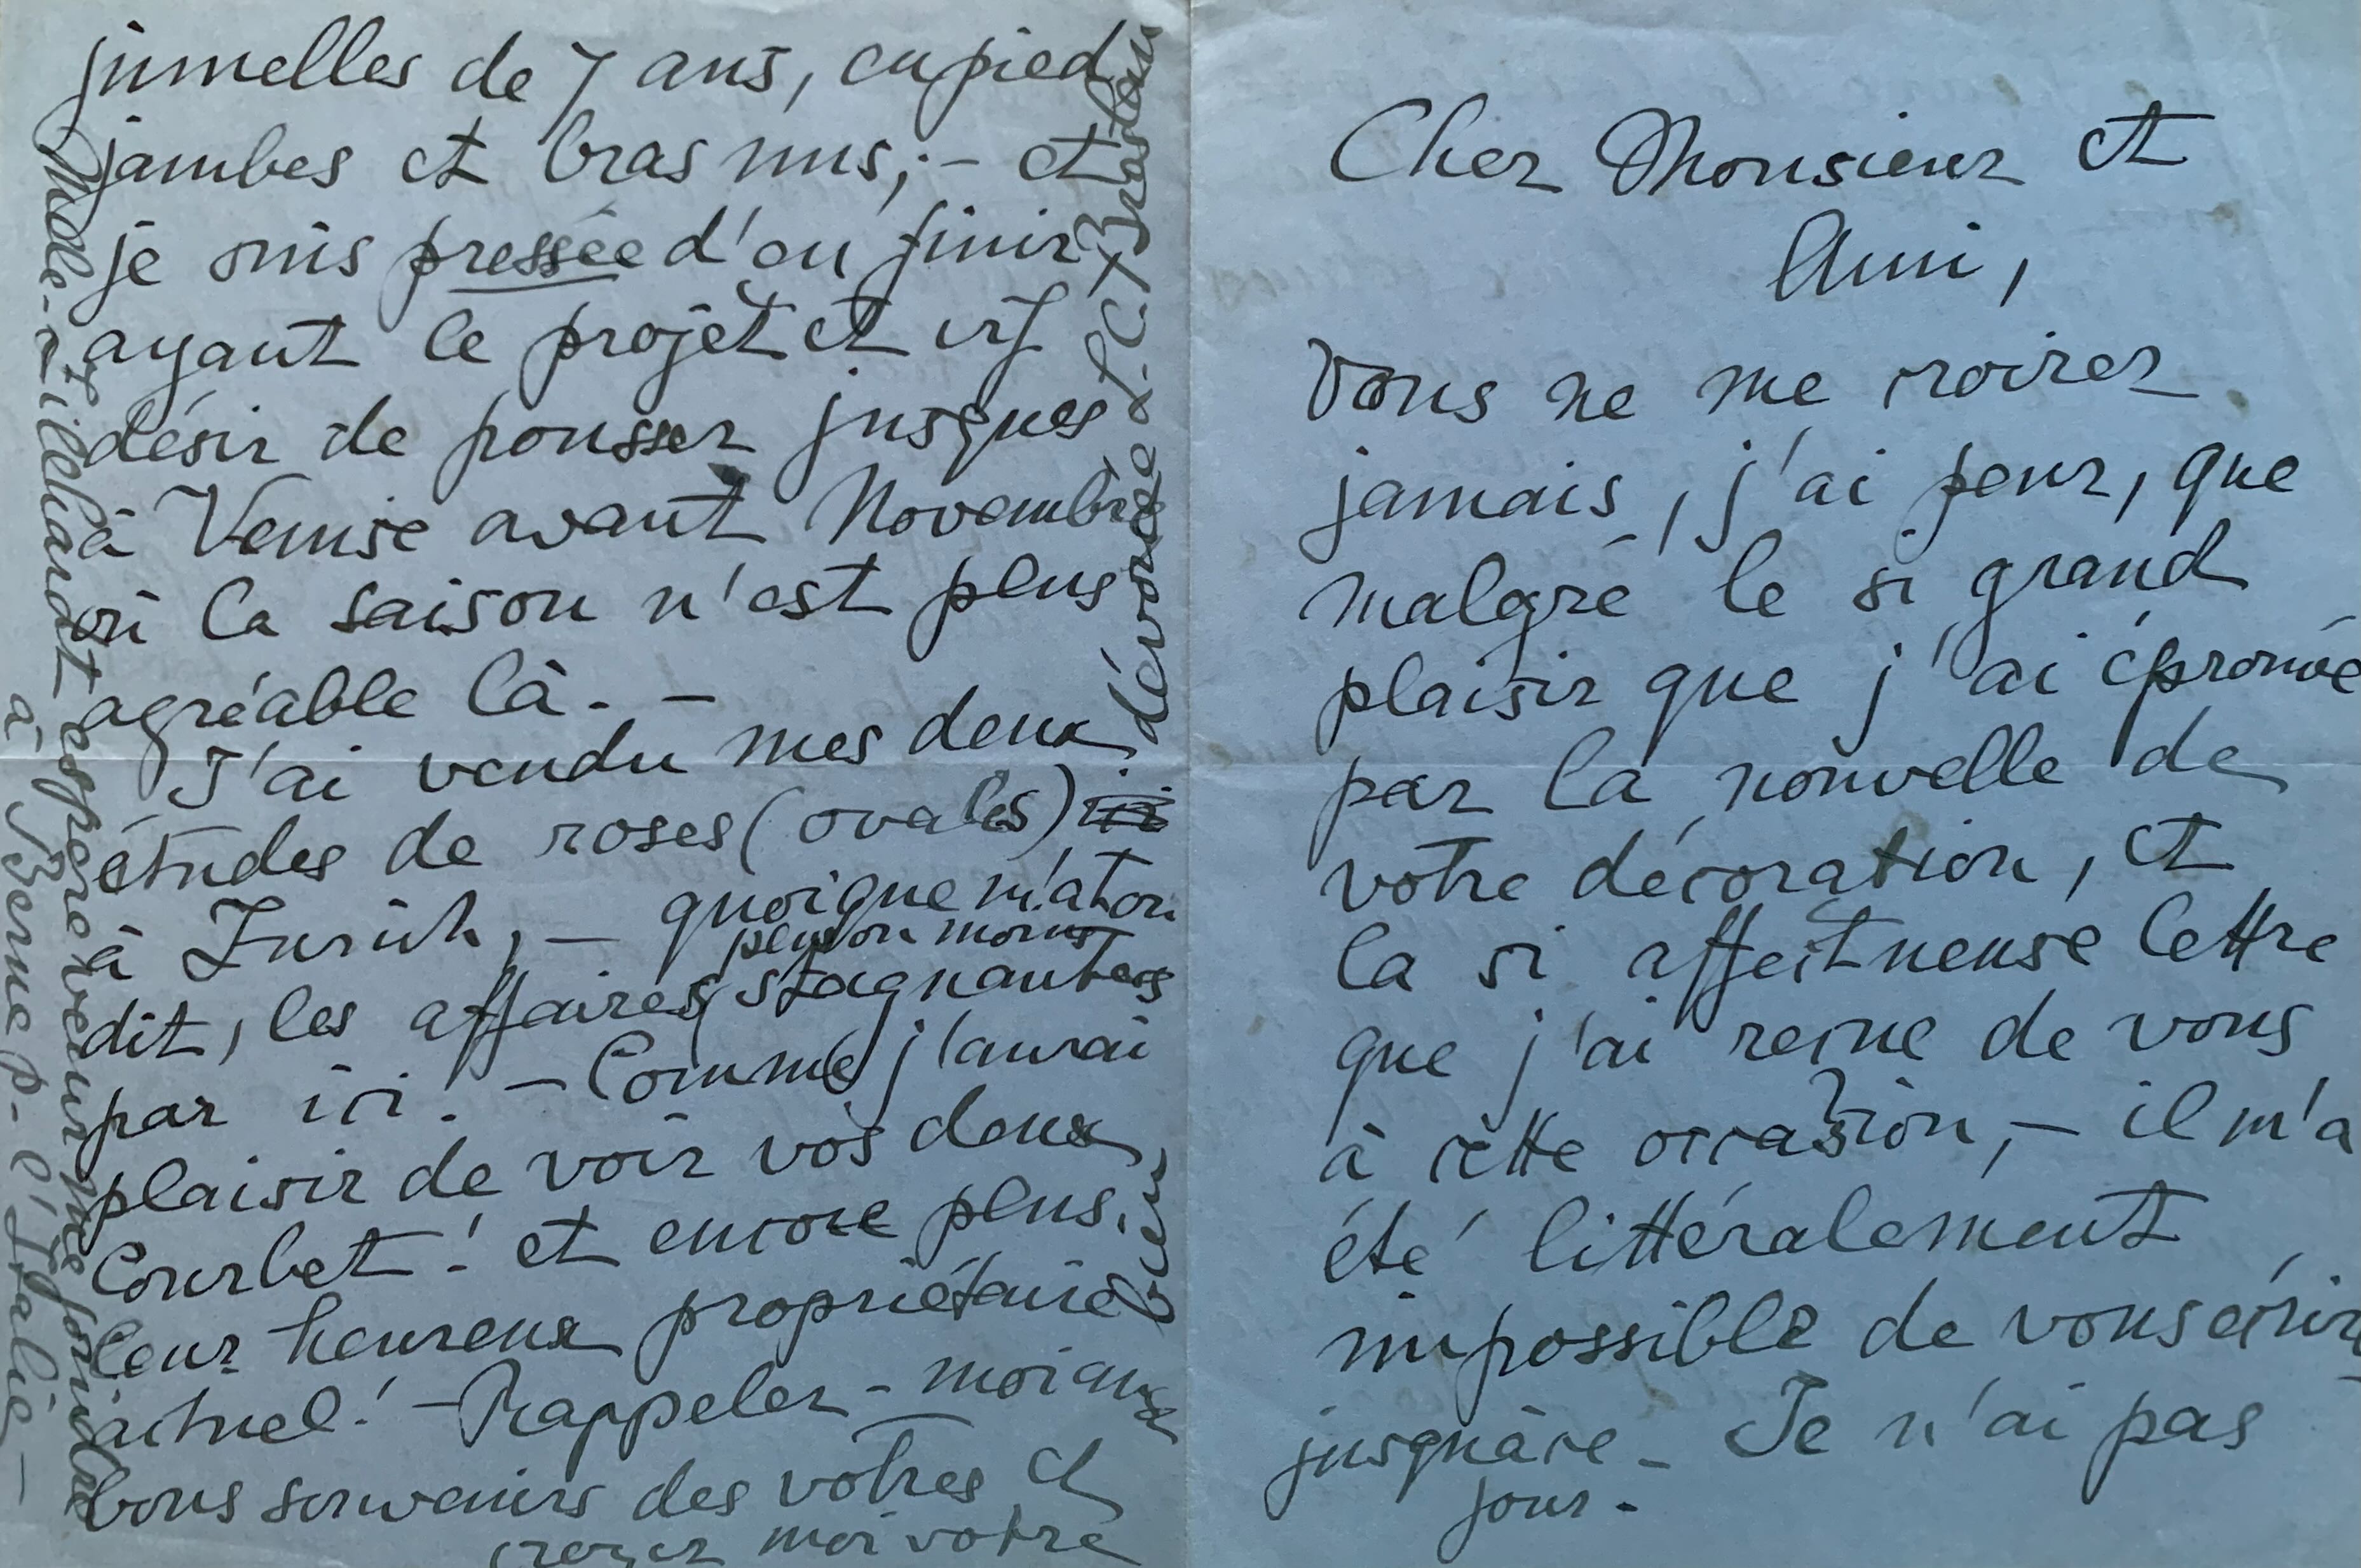 Cher Monsieur et
Ami,
Vous ne me croirez
jamais, j'ai peur, que
malgré le si grand
plaisir que j'ai éprouvé
par la nouvelle de
votre décoration, et
la si affectueuse lettre
que j'ai reçue de vous
à cette occasion, – il m'a
été littéralement
impossible de vous écrire
jusqu'à ce
jour. – Je n'ai pas
jumelles de 7 ans, en pied
jambes et bras nus; – et
je suis pressée d'en finir
ayant le projet et vif
désir de pousser jusques
à Venise avant Novembre
où la saison n'est plus
agréable là. –
J'ai vendu mes deux
études de roses (ovales)
à Zurich, – quoique m'a t on
dit, les affaires plus ou moins stagnantes
par ici. – Comme j'aurai
plaisir de voir vos deux
Courbet! et encore plus
leur heureux propriétaire
actuel! – Rappelez-moi aux
bons souvenirs des vôtres et
croyez moi votre
bien dévouée L. C. Breslau
Melle Zillhardt espère venir me joindre
à Berne p. l'Italie –